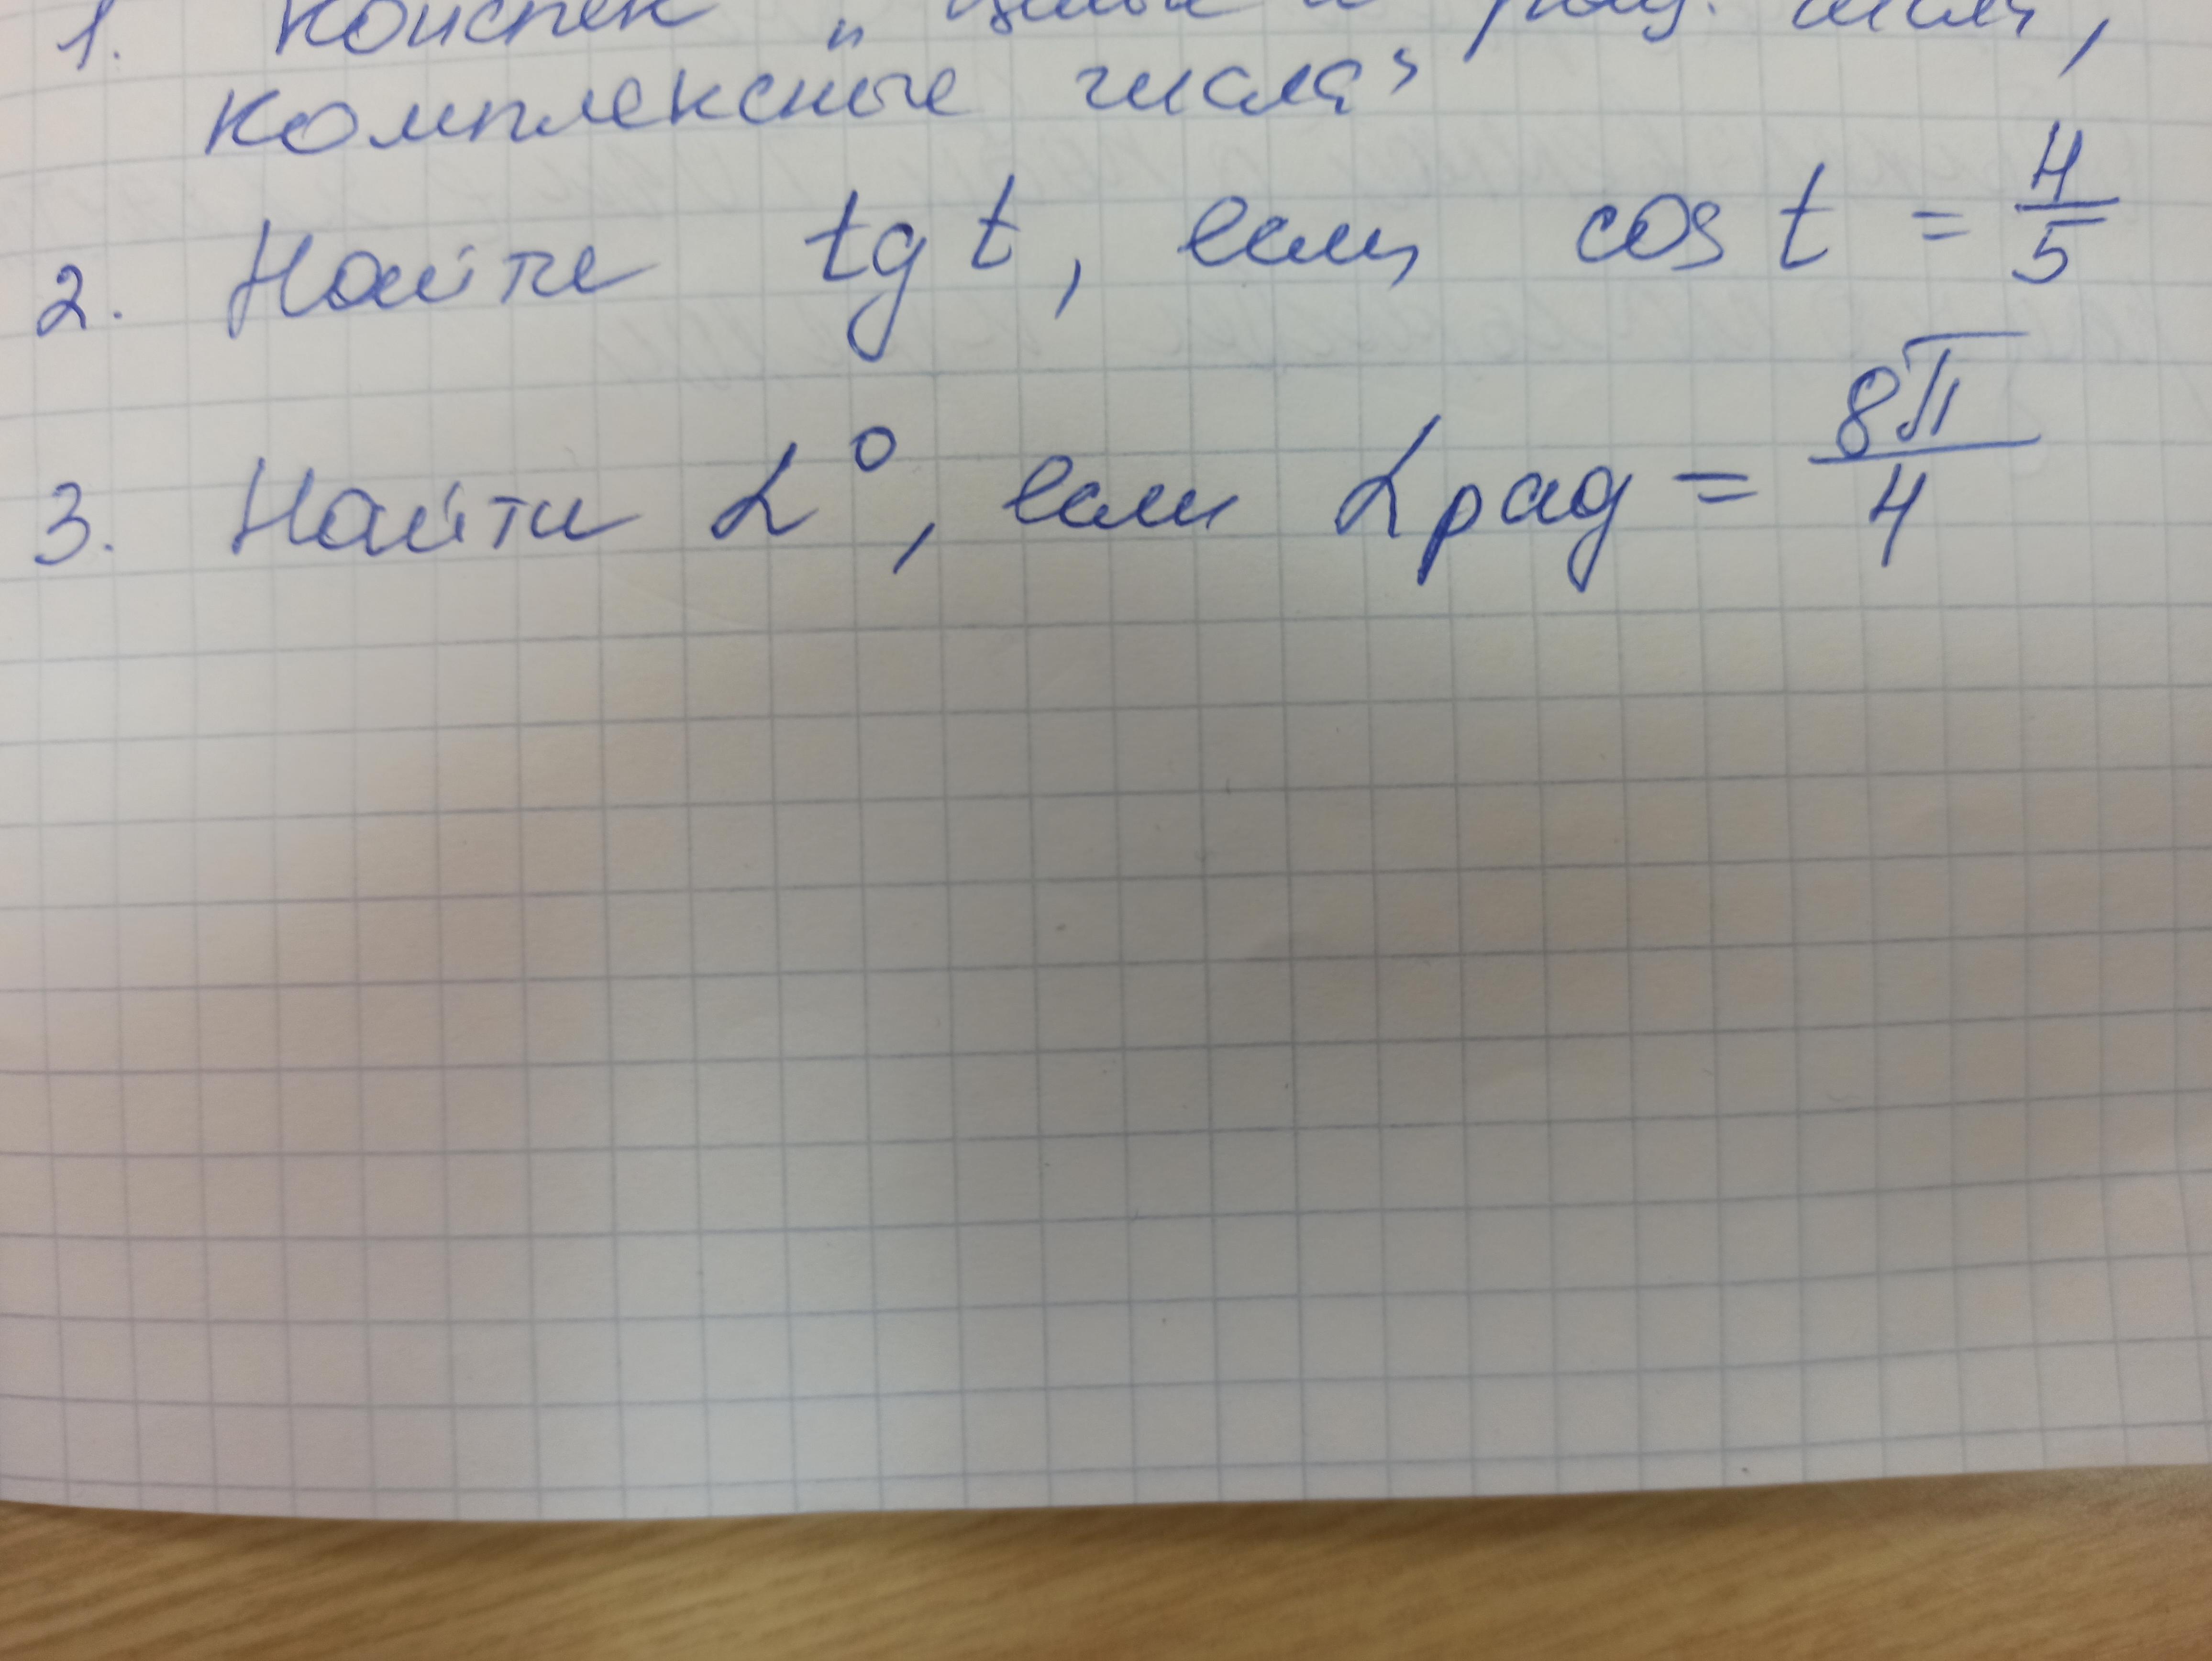 1. Конспек " Целые и рац. числа,
комплексные числа"
2. Найти tg t, если cos t = 4/5
3. Найти α°, если α рад = 8π/4